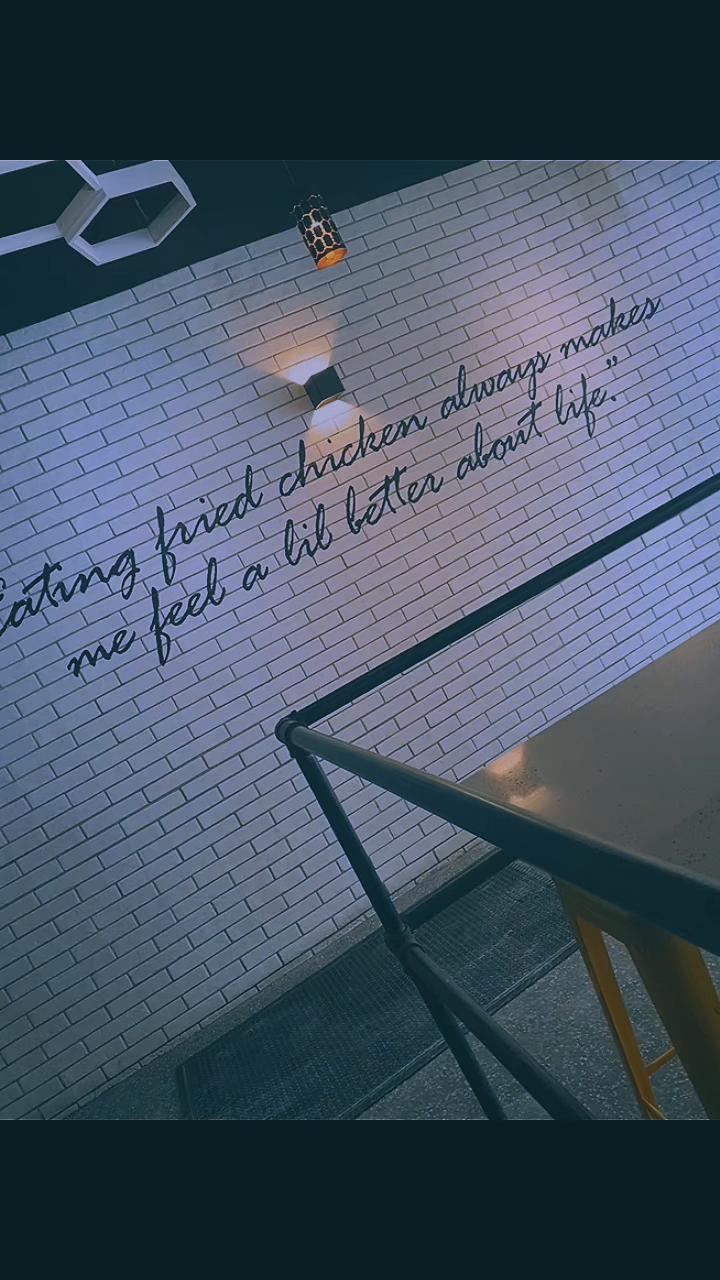 Eating fried chicken always makes
me feel a lil better about life."